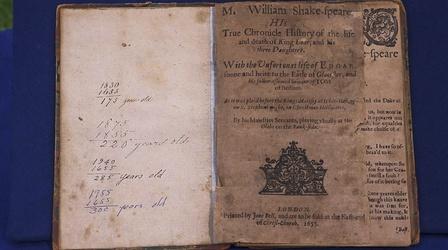 1830
1655
175 years old
1875
1655
220 years old
1940
1655
285 years old
1955
1655
300 years old
M. William Shake-speare,
HIS
True Chronicle History of the life
and death of King Lear, and his
three Daughters.
With the Unfortunat life of EDGAR,
sonne and heire to the Earle of Glocester, and
his sullen assumed humour of TOM
of Bedlam.
As it was plaid before the Kings Majesty at White-Hall, up-
on S. Stephens night, in Christmas Hollidaies.
By his Majesties Servants, playing usually at the
Globe on the Bank-side.
LONDON.
Printed by Jane Bell, and are to be sold at the East-end
of Christ-Church. 1655.
e-speare